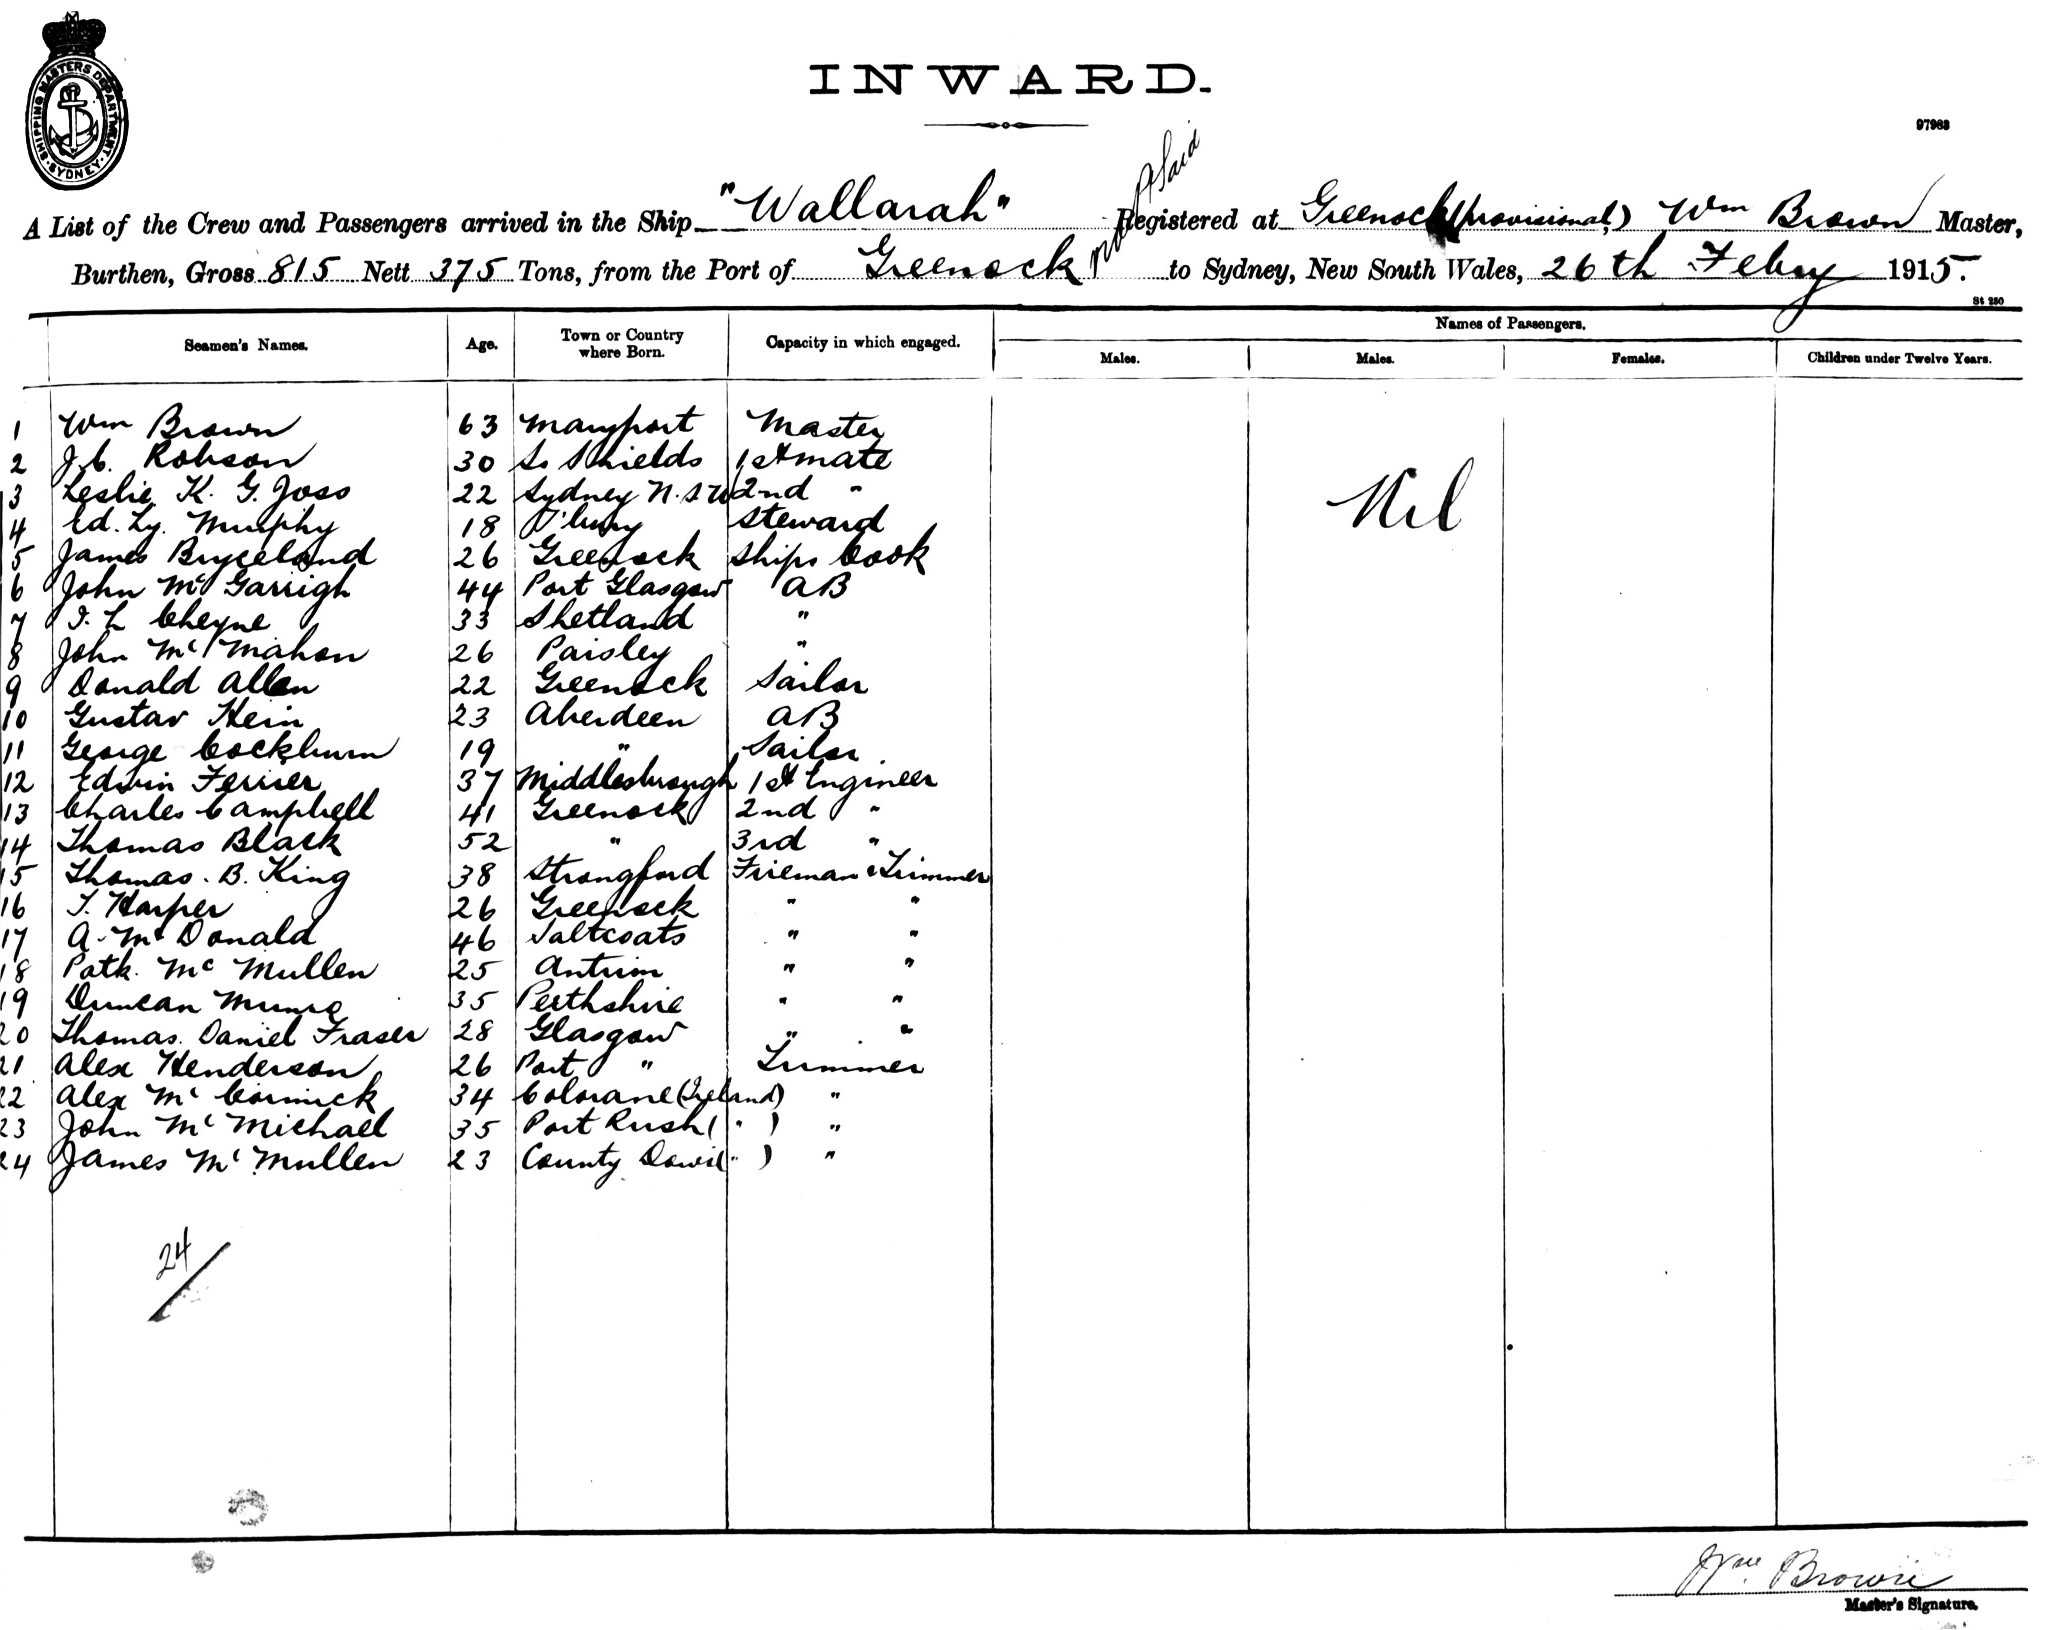 SHIPPING MASTERS DEPARTMENT. SYDNEY.
INWARD.
97963
A List of the Crew and Passengers arrived in the Ship "Wallarah" Registered at Greenock (provisional,) Wm Brown Master,
Burthen, Gross 815 Nett 375 Tons, from the Port of Greenock via P Said to Sydney, New South Wales, 26th Febry 1915.
St 250
Seamen's Names. Age. Town or Country where Born. Capacity in which engaged. Names of Passengers.
Males. Males. Females. Children under Twelve Years.
1 Wm Brown 63 Maryport Master
2 J. C. Robson 30 So Shields 1st mate
3 Leslie K. G. Joss 22 Sydney N.S.W 2nd "
4 Ed. Hy. Murphy 18 Steward
5 James Bryceland 26 Greenock Ships Cook
6 John Mc Garrigh 44 Port Glasgow AB
7 I. L Cheyne 33 Shetland "
8 John Mc Mahon 26 Paisley "
9 Donald Allen 22 Greenock Sailor
10 Gustav Hein 23 Aberdeen AB
11 George Cockburn 19 " Sailor
12 Edwin Ferrier 37 Middlesbrough 1st Engineer
13 Charles Campbell 41 Greenock 2nd "
14 Thomas Black 52 " 3rd "
15 Thomas. B. King 38 Strongford Frieman & Trimmer
16 T. Harper 26 Greenock " "
17 A. Mc Donald 46 Saltcoats " "
18 Patk. Mc Mullen 25 Antrim " "
19 Duncan Munro 35 Perthshire " "
20 Thomas. Daniel Fraser 28 Glasgow " "
21 Alex Henderson 26 Port " Trimmer
22 Alex Mc Cormick 34 Colorane (Ireland) "
23 John Mc Michael 35 Port Rush ( " ) "
24 James Mc Mullen 23 County Down ( " ) "
Nil
24
Wm. Brown
Master's Signature.